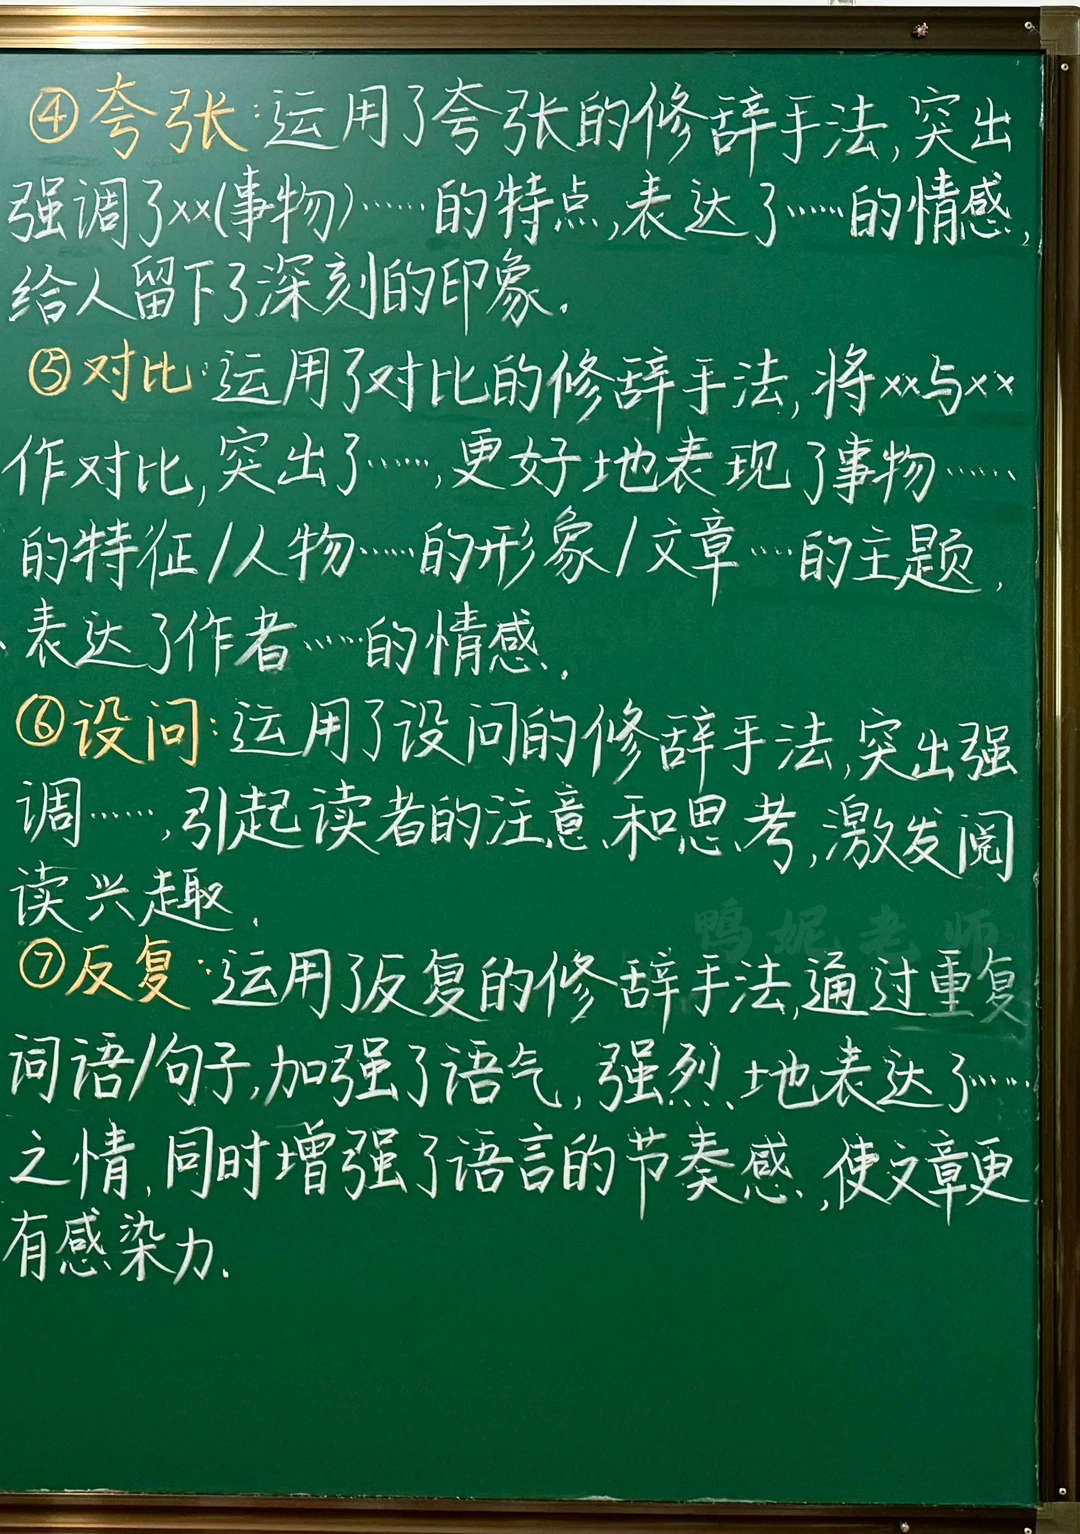 ④夸张:运用了夸张的修辞手法,突出
强调了××(事物)……的特点,表达了……的情感,
给人留下了深刻的印象.
⑤对比:运用了对比的修辞手法,将××与××
作对比,突出了……,更好地表现了事物……
的特征/人物……的形象/文章……的主题,
表达了作者……的情感.
⑥设问:运用了设问的修辞手法,突出强
调……,引起读者的注意和思考,激发阅
读兴趣.
鸭妮老师
⑦反复:运用了反复的修辞手法,通过重复
词语/句子,加强了语气,强烈地表达了……
之情,同时增强了语言的节奏感,使文章更
有感染力.